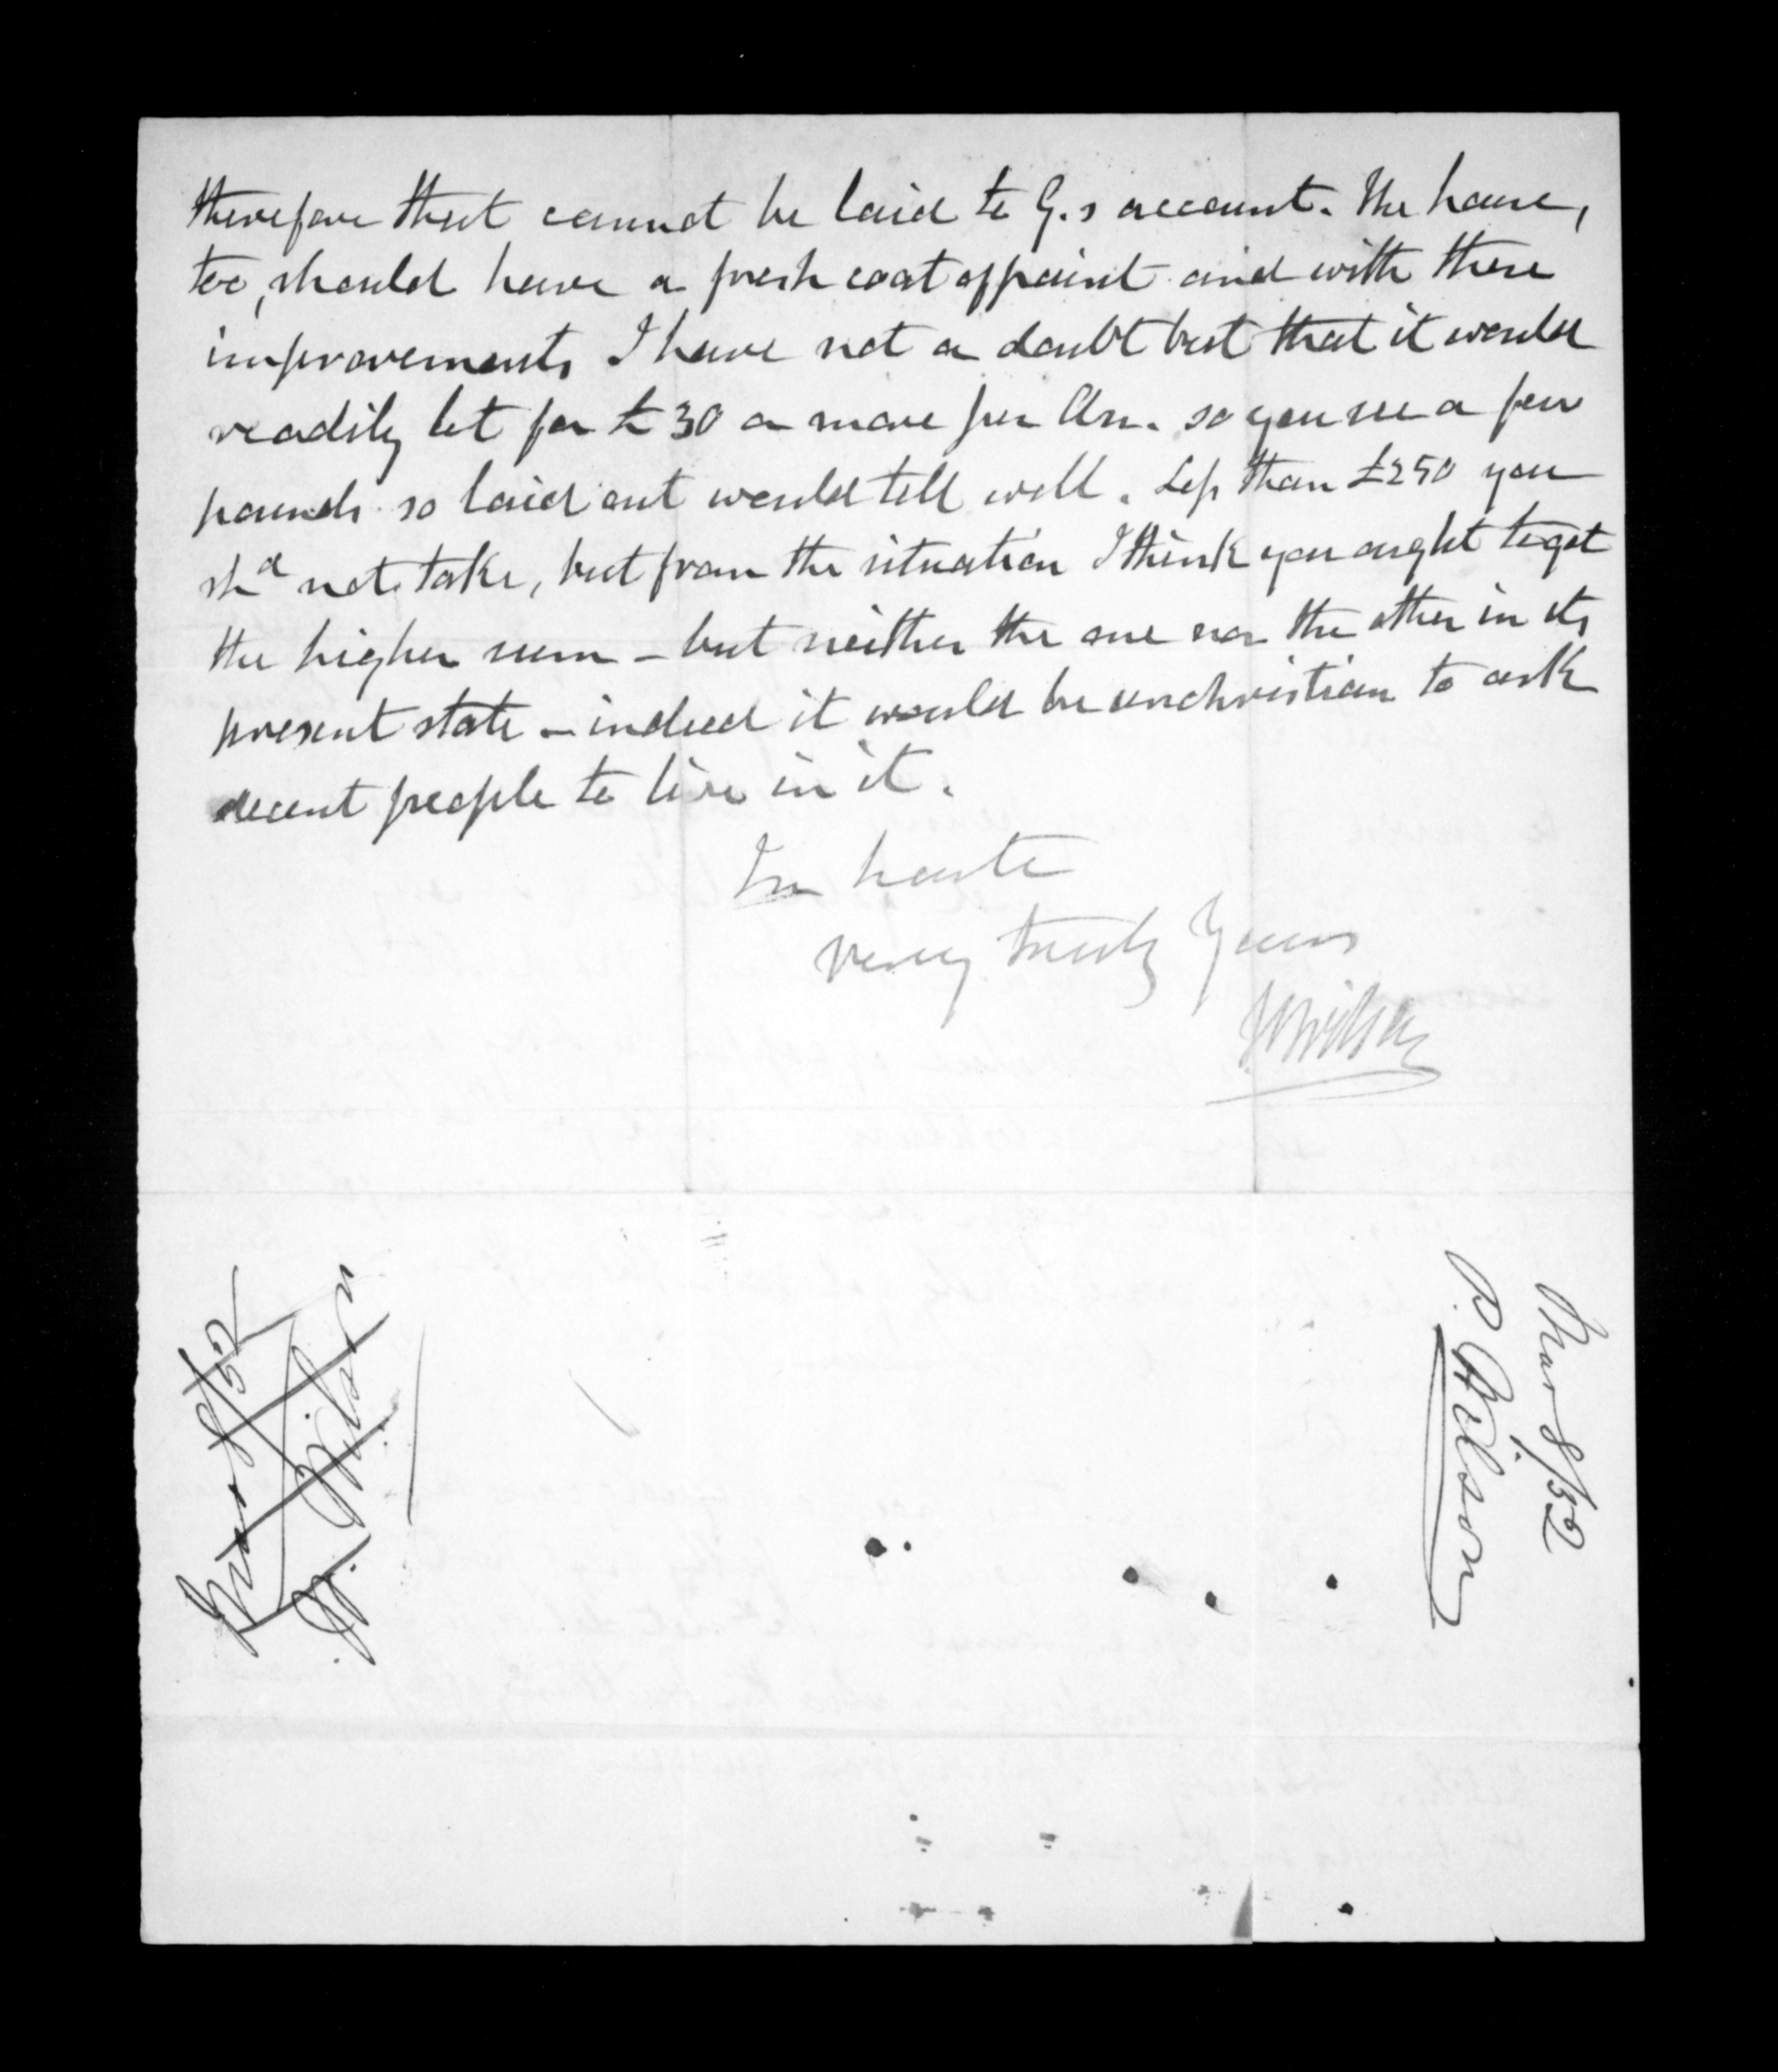 therefore that cannot be laid to G.s account. The house,
too, should have a fresh coat of paint and with these
improvements I have not a doubt but that it would
readily let for £30 or more per An. so you see a few
pounds so laid out would tell well. Less than £250 you
shd not take, but from the situation I think you ought to get
the higher sum - but neither the one nor the other in its
present state - indeed it would be unchristian to ask
decent people to live in it.
In haste
very truly Yours
P Wilson
Mar 8/52
P. Wilson
Mar 8/52
P. Wilson